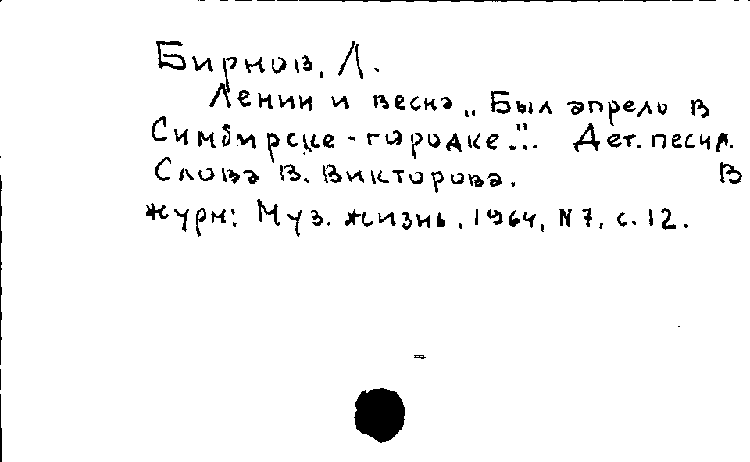 Бирнов, Л.
Ленин и весна „Был апрель в
Симбирске-городке...". Дет. песня.
Слова В. Викторова. В
журн: Муз. жизнь, 1964, N7, с. 12.